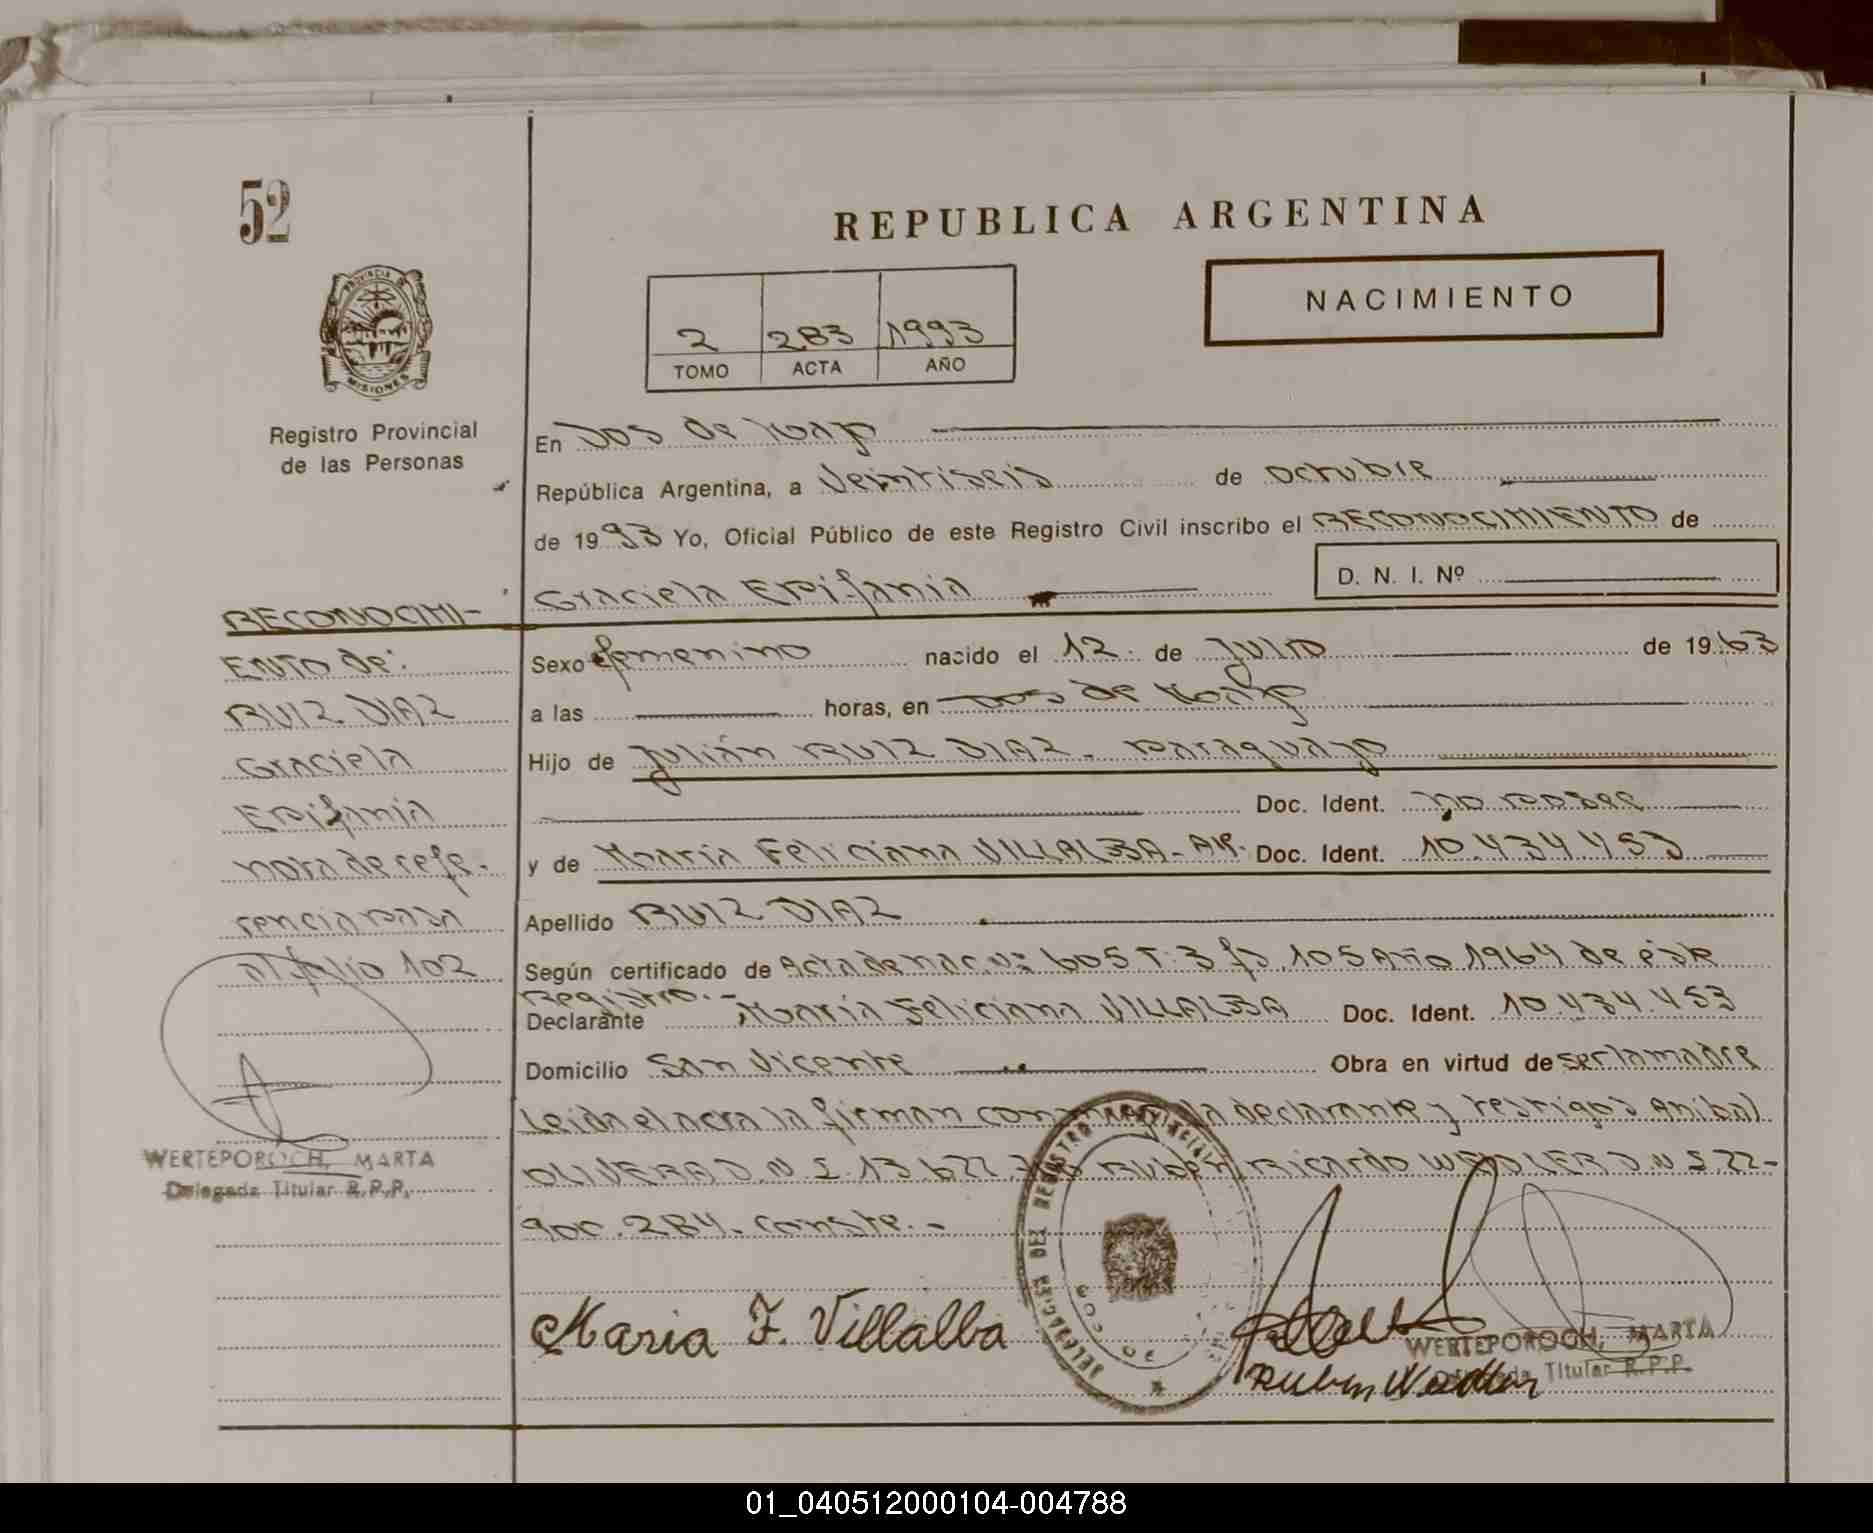 52
REPUBLICA ARGENTINA
NACIMIENTO
PROVINCIA DE
MISIONES
2 283 1993
TOMO ACTA AÑO
Registro Provincial
de las Personas
En Dos de Mayo
República Argentina, a Veintiseis de Octubre
de 1993 Yo, Oficial Público de este Registro Civil inscribo el RECONOCIMIENTO de
Graciela Epifania D. N. I. Nº
RECONOCIMI-
ENTO de:
RUIZ DIAZ
Graciela
Epifania
nota de refe-
rencia pasa
al folio 102
WERTEPOROCH, MARTA
Delegada Titular R.P.P.
Sexo femenino nacido el 12 de Julio de 1963
a las horas, en Dos de Mayo
Hijo de Julián RUIZ DIAZ - paraguayo
Doc. Ident. no posee
y de Maria Feliciana VILLALBA - Arg. Doc. Ident. 10.434.453
Apellido RUIZ DIAZ
Según certificado de Acta de nac. Nº 605 T. 3 fº 105 Año 1964 de éste
Registro.-
Declarante María Feliciana VILLALBA Doc. Ident. 10.434.453
Domicilio San Vicente Obra en virtud de ser la madre
Leida el acta la firman conmigo la declarante y testigos Anibal
OLIVERA D.N.I. 13.622. Ruben Ricardo WEDLER D.N.I. 22-
900.284. Conste.-
DELEGACION DEL REGISTRO PROVINCIAL
Maria F. Villalba
WERTEPOROCH, MARTA
Titular R.P.P.
Ruben Wedler
01_040512000104-004788